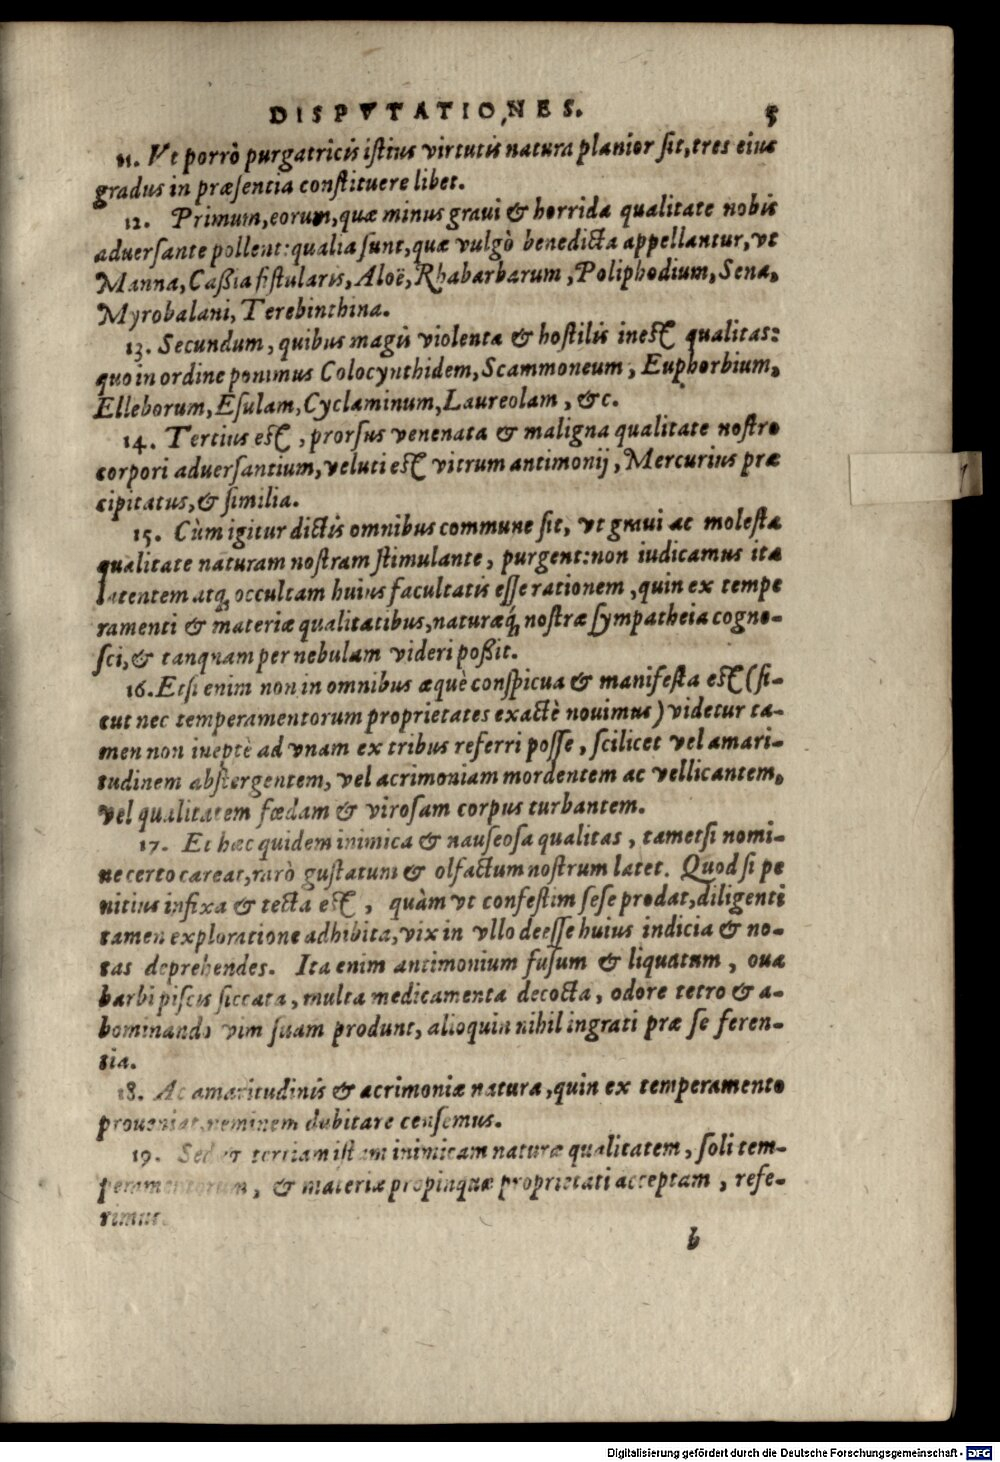 DISPVTATIONES. 5
11. Vt porrò purgatricis istius virtutis natura planior sit, tres eius
gradus in præsentia constituere libet.
12. Primum, eorum, quæ minus graui & horrida qualitate nobis
aduersante pollent: qualia sunt, quæ vulgò benedicta appellantur, vt
Manna, Caßia fistularis, Aloë, Rhabarbarum, Poliphodium, Sena,
Myrobalani, Terebinthina.
13. Secundum, quibus magis violenta & hostilis inest qualitas:
quo in ordine ponimus Colocynthidem, Scammoneum, Euphorbium,
Elleborum, Esulam, Cyclaminum, Laureolam, &c.
14. Tertius est, prorsus venenata & maligna qualitate nostro
corpori aduersantium, veluti est vitrum antimonij, Mercurius præ
cipitatus, & similia.
15. Cùm igitur dictis omnibus commune sit, vt graui ac molesta
qualitate naturam nostram stimulante, purgent: non iudicamus ita
latentem atq; occultam huius facultatis esse rationem, quin ex tempe
ramenti & materiæ qualitatibus, naturæq́; nostræ sympatheia cogno-
sci, & tanquam per nebulam videri poßit.
16. Etsi enim non in omnibus æquè conspicua & manifesta est (si-
cut nec temperamentorum proprietates exactè nouimus) videtur ta-
men non ineptè ad vnam ex tribus referri posse, scilicet vel amari-
tudinem abstergentem, vel acrimoniam mordentem ac vellicantem,
vel qualitatem fœdam & virosam corpus turbantem.
17. Et hæc quidem inimica & nauseosa qualitas, tametsi nomi-
ne certo careat, rarò gustatum & olfactum nostrum latet. Quod si pe
nitius infixa & tecta est, quàm vt confestim sese prodat, diligenti
tamen exploratione adhibita, vix in vllo deesse huius indicia & no-
tas deprehendes. Ita enim antimonium fusum & liquatum, oua
barbi piscis siccata, multa medicamenta decocta, odore tetro & a-
bominando vim suam produnt, alioquin nihil ingrati præ se feren-
tia.
18. Ac amaritudinis & acrimoniæ natura, quin ex temperamento
proueniat, neminem dubitare censemus.
19. Sed & tertiam istam inimicam naturæ qualitatem, soli tem-
peramentorum, & materiæ propinquæ proprietati acceptam, refe-
rimus.
b
Digitalisierung gefördert durch die Deutsche Forschungsgemeinschaft - DFG